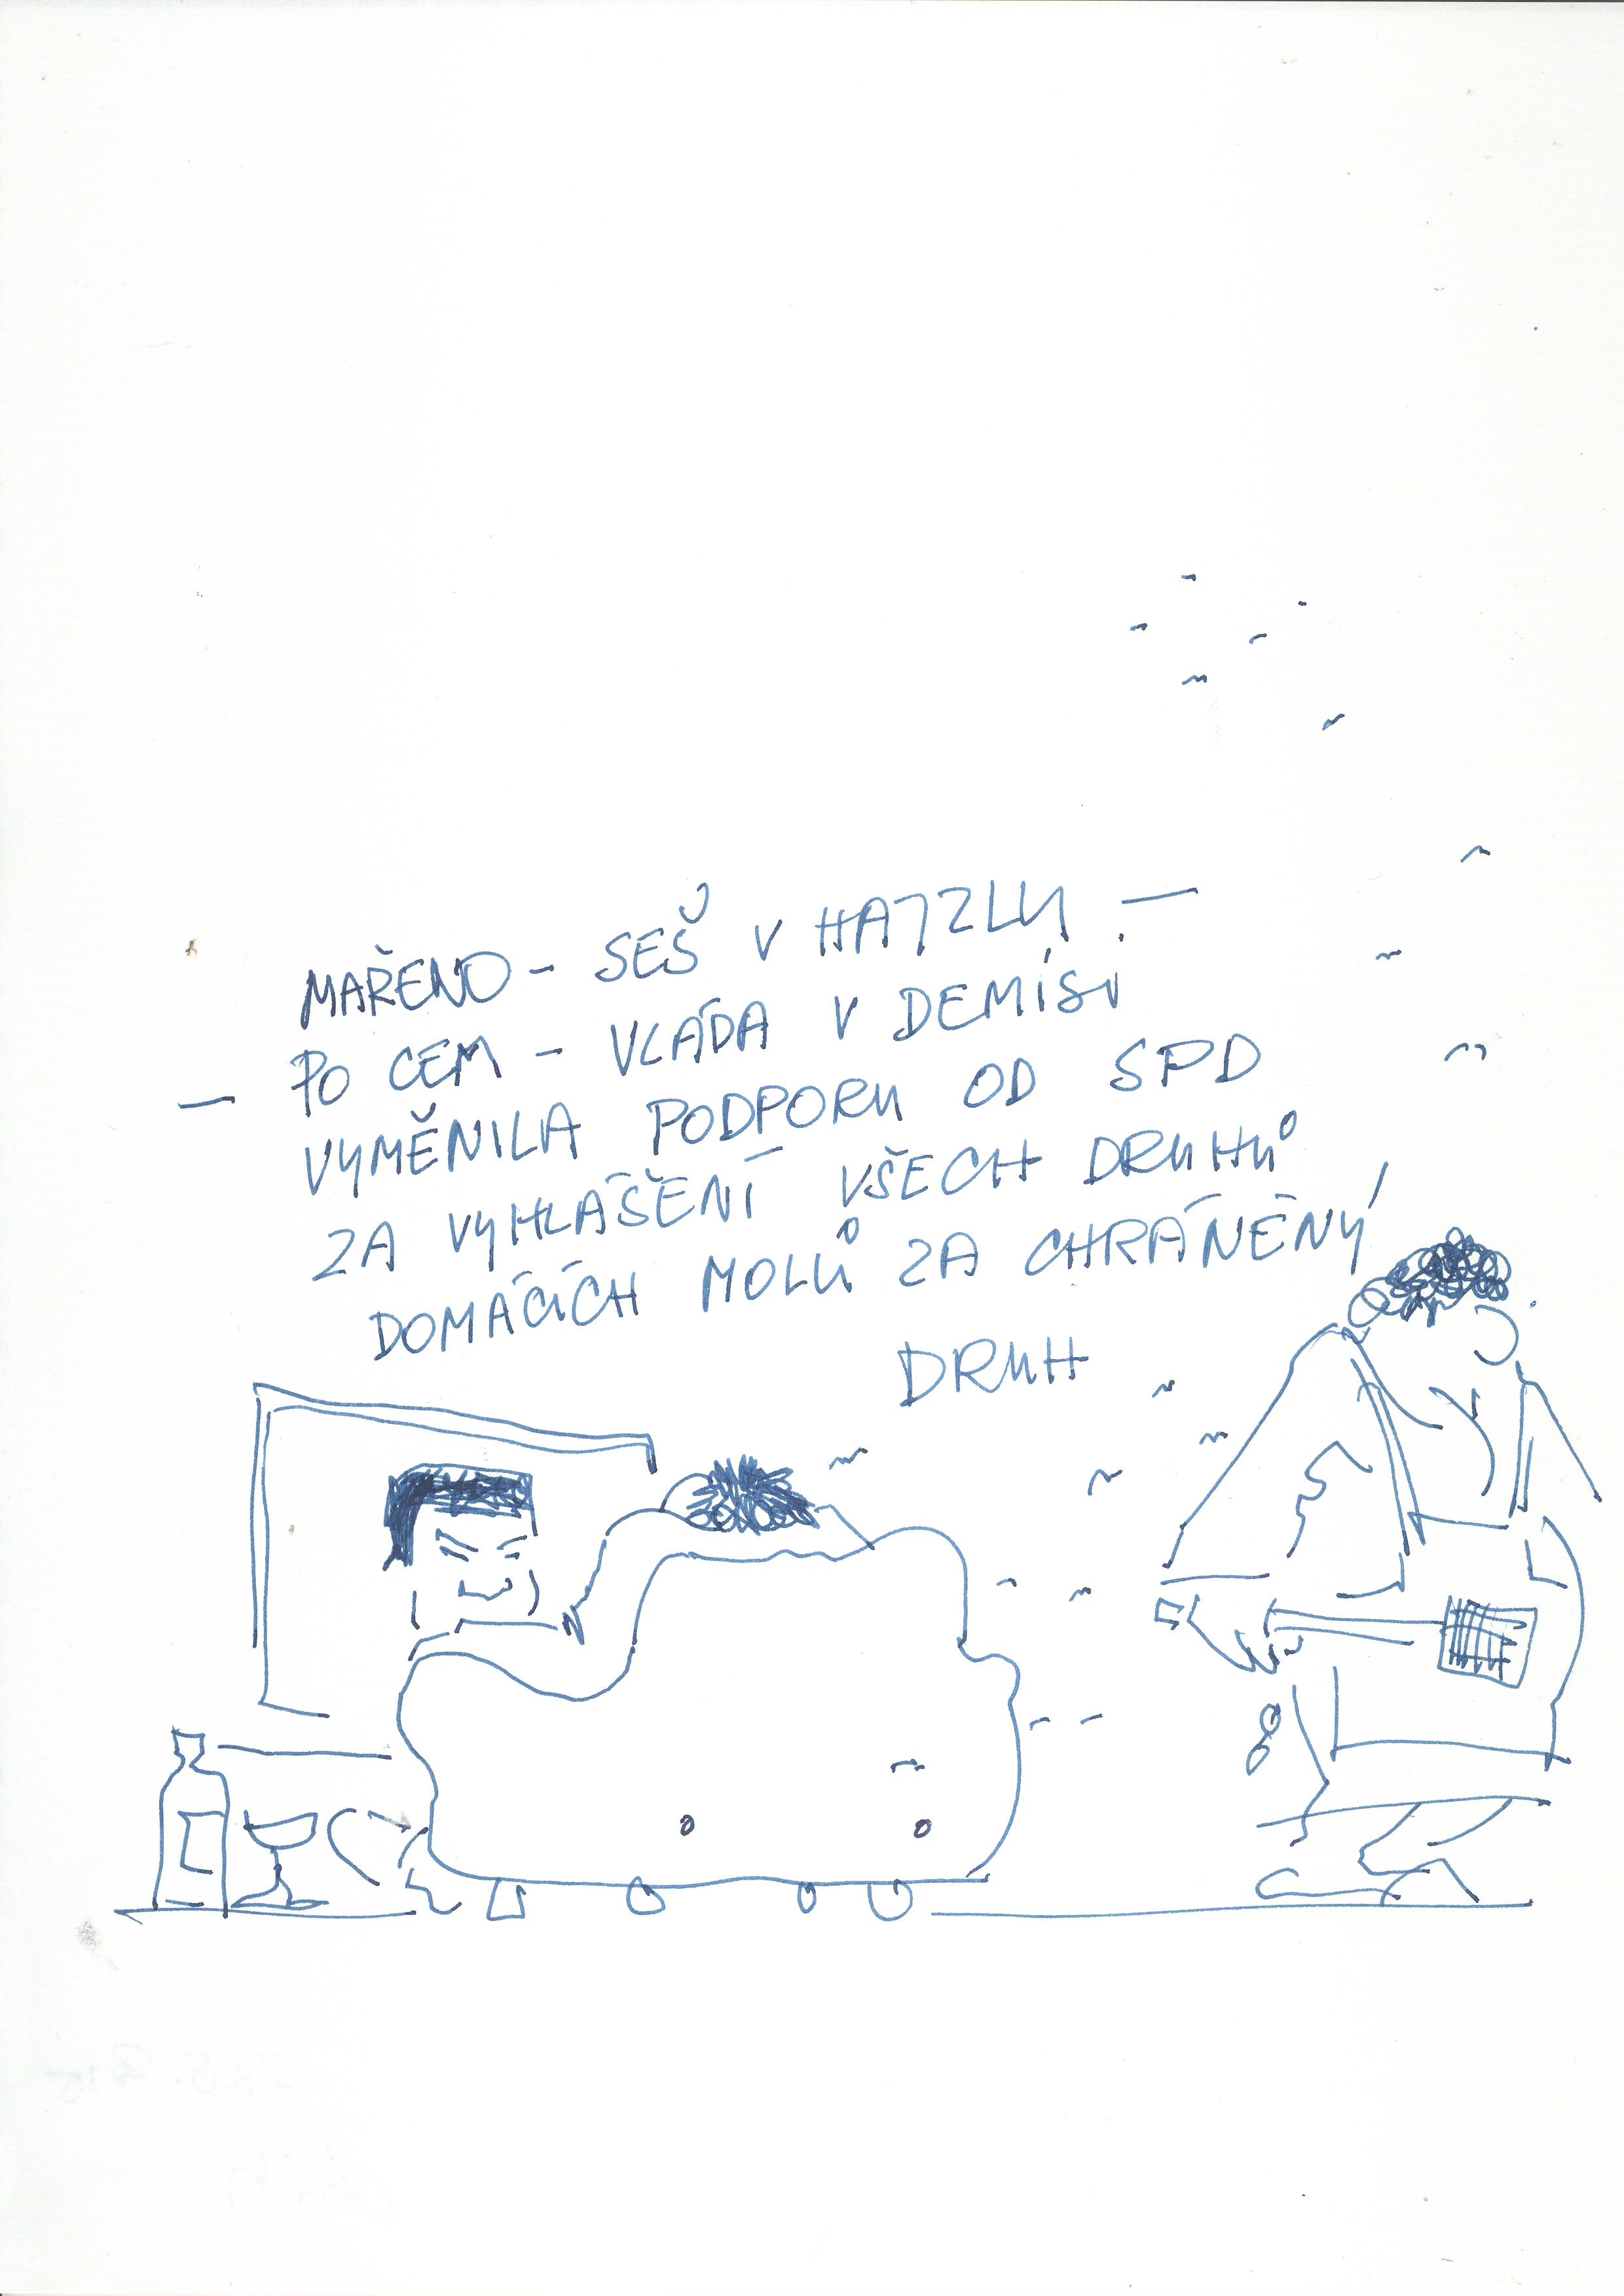 MAŘENO - SEŠ V HAJZLU -
- PO CEM - VLÁDA V DEMISI
VYMĚNILA PODPORU OD SPD
ZA VYHLÁŠENÍ VŠECH DRUHŮ
DOMÁCÍCH MOLŮ ZA CHRÁNĚNÝ
DRUH